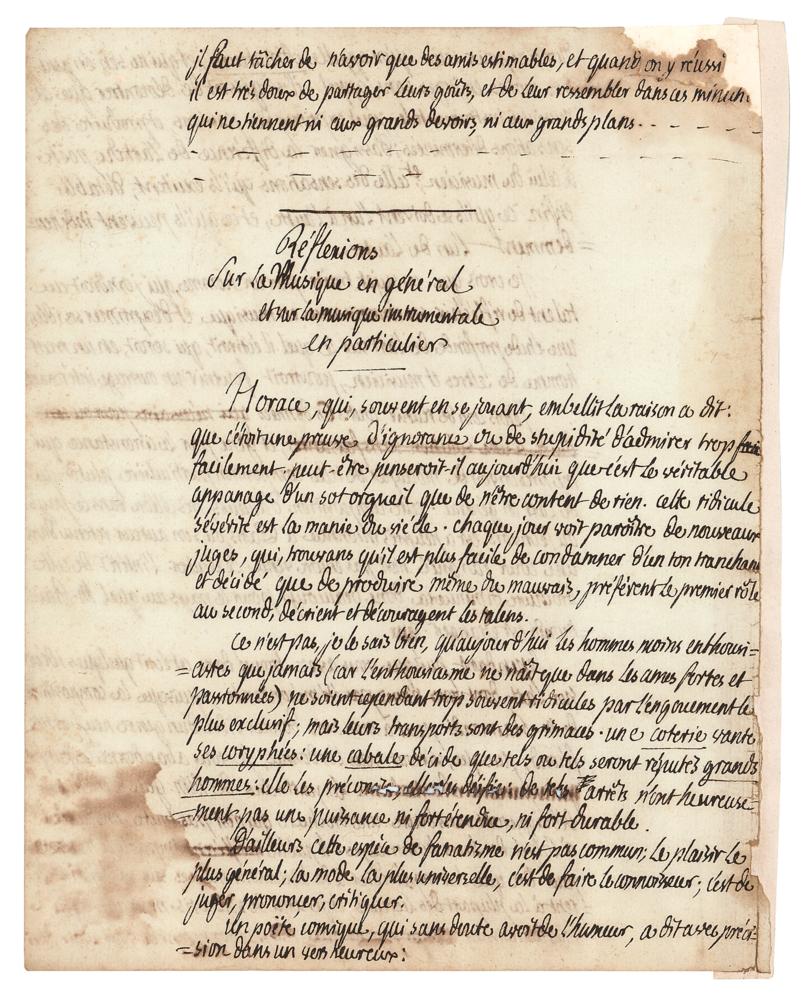 il faut tâcher de n'avoir que des amis estimables, et quand on y réussi
il est très doux de partager leurs goûts, et de leur ressembler dans ces minuti
qui ne tiennent ni aux grands devoirs, ni aux grands plans. - - - -
Réflexions
Sur la Musique en général
et sur la musique instrumentale
en particulier
Horace, qui, souvent en se jouant, embellit la raison a dit:
que c'étoit une preuve d'ignorance ou de stupidité d'admirer trop
facilement. peut-être penseroit-il aujourd'hui que c'est le véritable
appanage d'un sot orgueil que de n'être content de rien. cette ridicule
sévérité est la manie du siécle. chaque jour voit paroître de nouveaux
juges, qui, trouvans qu'il est plus facile de condamner d'un ton tranchant
et décidé que de produire même du mauvais, préfèrent le premier rôle
au second, décrient et découragent les talens.
Ce n'est pas, je le sais bien, qu'aujourd'hui les hommes moins enthousi-
=astes que jamais (car l'enthousiasme ne naît que dans les ames fortes et
passionnées) ne soient cependant trop souvent ridicules par l'engouement le
plus exclusif; mais leurs transports sont des grimaces. une coterie vante
ses coryphées: une cabale décide que tels ou tels seront réputés grands
hommes: elle les préconise, arrêts n'ont heureuse=
=ment pas une puissance ni fort étendue, ni fort durable.
D'ailleurs cette espèce de fanatisme n'est pas commun; le plaisir le
plus général; la mode la plus universelle, c'est de faire le connoisseur; c'est de
juger, prononcer, critiquer.
Un poëte comique, qui sans doute avoit de l'humeur, a dit avec préci=
=sion dans un vers heureux: